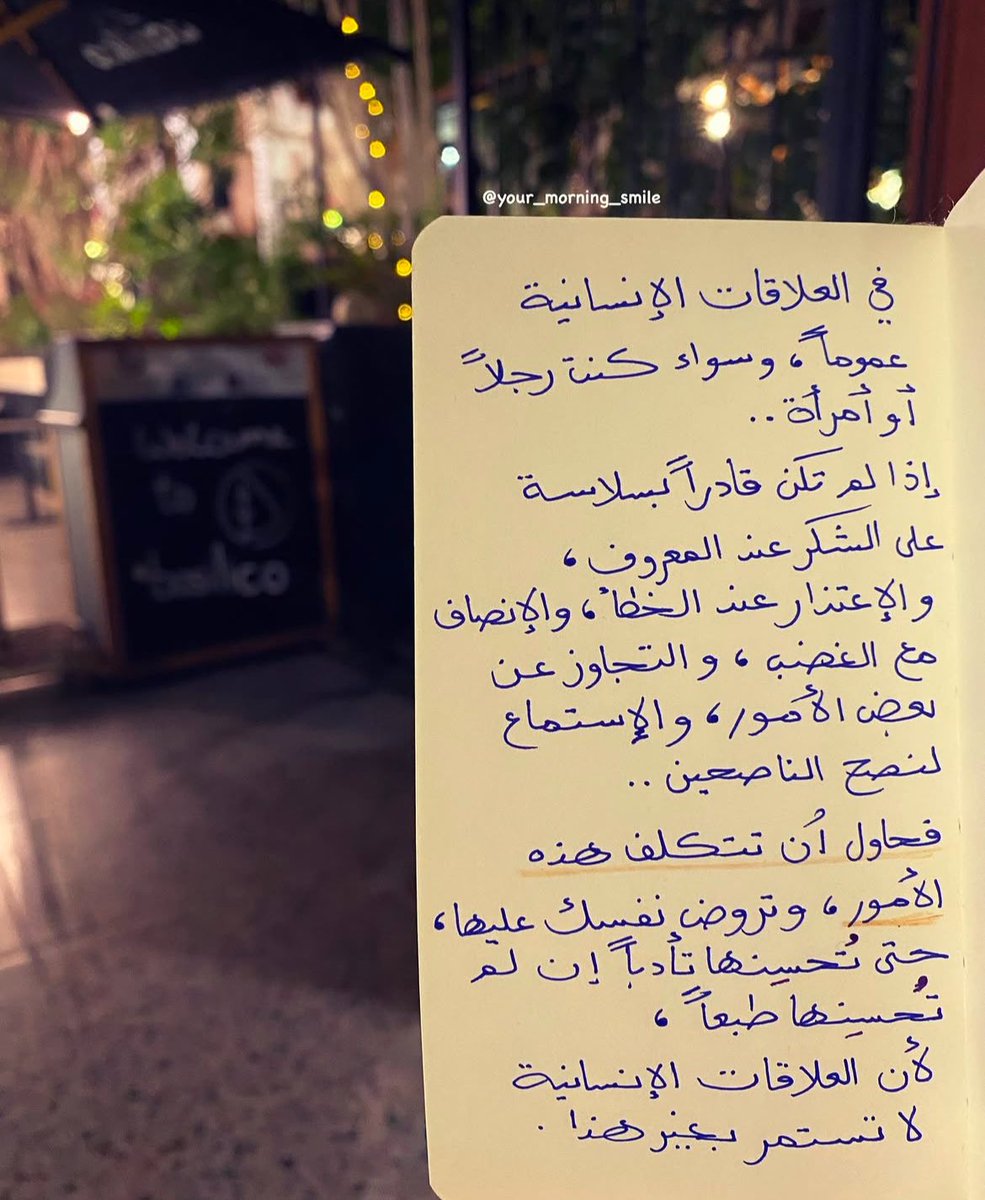 @your_morning_smile
في العلاقات الإنسانية
عموماً، وسواء كنت رجلاً
أو أمرأة..
إذا لم تكن قادراً بسلاسة
على الشكر عند المعروف،
والإعتذار عند الخطأ، والإنصاف
مع الغضب، والتجاوز عن
بعض الأمور، والإستماع
لنصح الناصحين..
فحاول أن تتكلف هذه
الأمور، وتروض نفسك عليها،
حتى تُحسِنها تأدباً إن لم
تُحسِنها طبعاً،
لأن العلاقات الإنسانية
لا تستمر بغير هذا.
Welcome
to